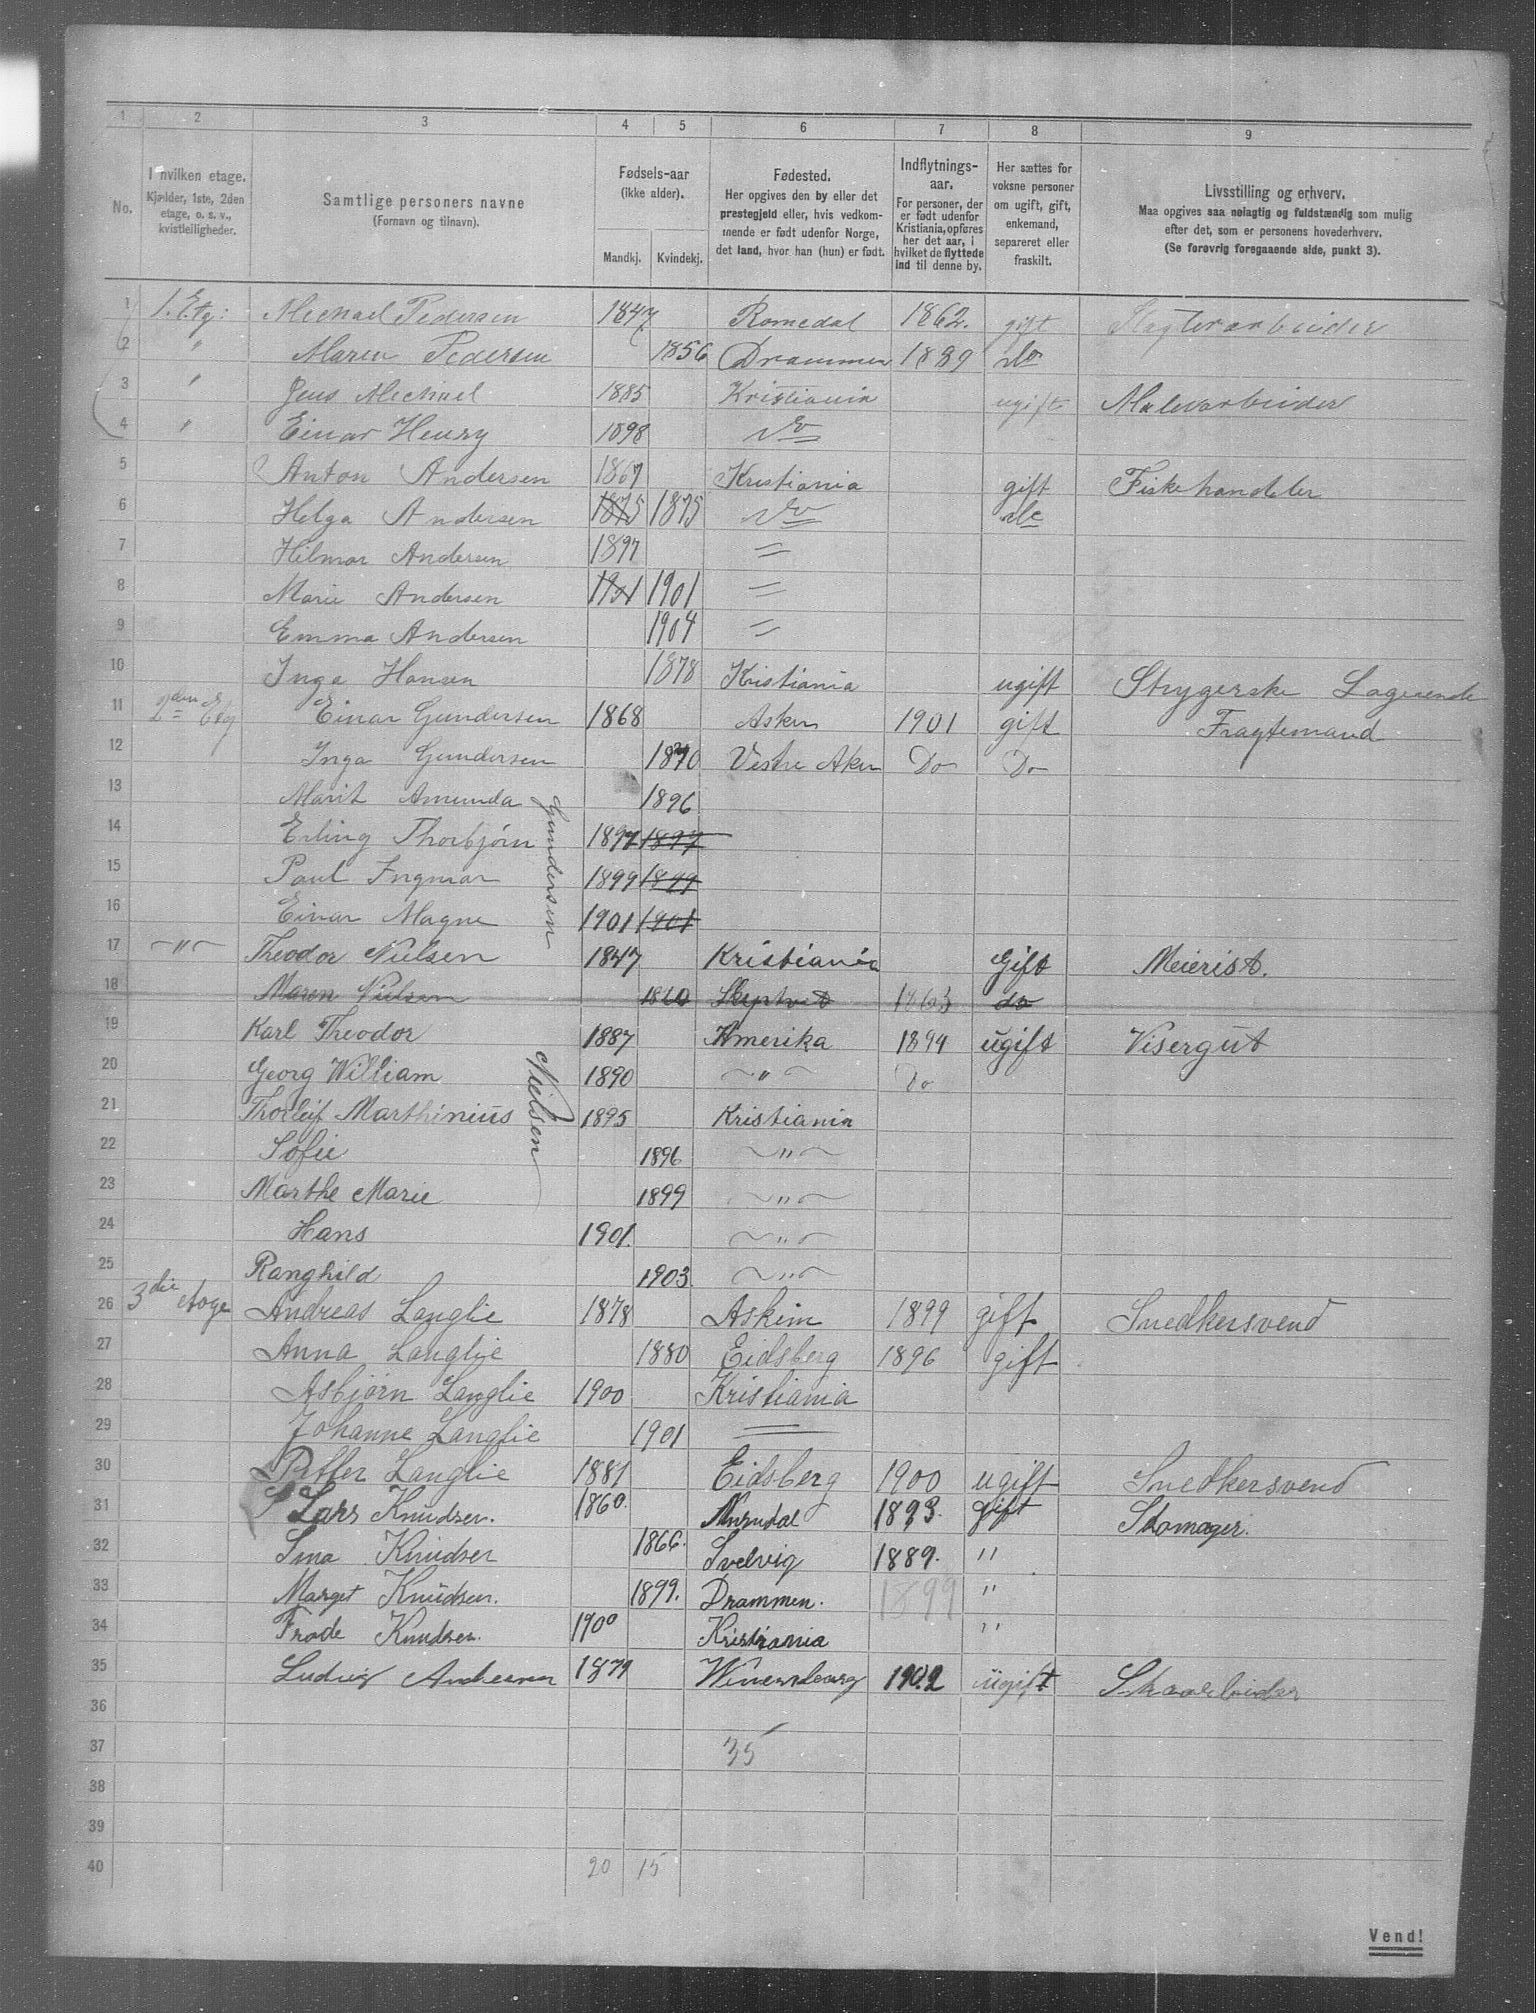 1 2 3 4 5 6 7 8 9
No. I hvilken etage. Kjælder, 1ste, 2den etage, o. s. v., kvistleiligheder. Samtlige personers navne (Fornavn og tilnavn). Fødsels-aar (ikke alder). Mandkj. Kvindekj. Fødested. Her opgives den by eller det prestegjeld eller, hvis vedkommende er født udenfor Norge, det land, hvor han (hun) er født. Indflytnings-aar. For personer, der er født udenfor Kristiania, opføres her det aar, i hvilket de flyttede ind til denne by. Her sættes for voksne personer om ugift, gift, enkemand, separeret eller fraskilt. Livsstilling og erhverv. Maa opgives saa nøiagtig og fuldstændig som mulig efter det, som er personens hovederhverv. (Se forøvrig foregaaende side, punkt 3).
1 1. Etg: Michael Pedersen 1847 Romedal 1862. gift Slagterarbeider
2 " Maren Pedersen 1856 Drammen 1889 do
3 " Jens Michael 1885 Kristiania ugift Malerarbeider
4 " Einar Henry 1898 do
5 Anton Andersen 1867 Kristiania gift Fiskehandler
6 Helga Andersen 1875 1875 do do
7 Hilmar Andersen 1897 "
8 Marie Andersen 1901 1901 "
9 Emma Andersen 1904 "
10 Inga Hansen 1878 Kristiania ugift Strygerske Logerende
11 2den Etg Einar Gundersen 1868 Asker 1901 gift Fragtemand
12 Inga Gundersen 1870 Vestre Aker Do Do
13 Marit Amunda 1896
14 Erling Thorbjørn Gundersen 1897 1897
15 Paul Ingmar 1899 1899
16 Einar Magne 1901 1901
17 " Theodor Nielsen 1847 Kristiania Gift Meierist.
18 Maren Nielsen 1860 Skiptvet 1863 do
19 Karl Theodor 1887 Amerika 1894 ugift Visergut
20 Georg William 1890 " Do
21 Thorleif Marthinius Nielsen 1895 Kristiania
22 Sofie 1896 "
23 Marthe Marie 1899 "
24 Hans 1901. "
25 Ranghild 1903. "
26 3die Etage Andreas Langlie 1878 Askim 1899 gift Snedkersvend
27 Anna Langlie 1880 Eidsberg 1896 gift
28 Asbjørn Langlie 1900 Kristiania
29 Johanne Langlie 1901 "
30 Petter Langlie 1881 Eidsberg 1900 ugift Snedkersvend
31 Lars Knudsen. 1860. 1893. gift Skomager.
32 Knudsen 1866. Svelvig 1889. "
33 Marget Knudsen. 1899. Drammen. 1899 "
34 Frode Knudsen. 1900 Kristiania "
35 Ludvig Andersen 1879 1902 ugift Skoarbeider
36
37 35
38
39
40 20 15
Vend!